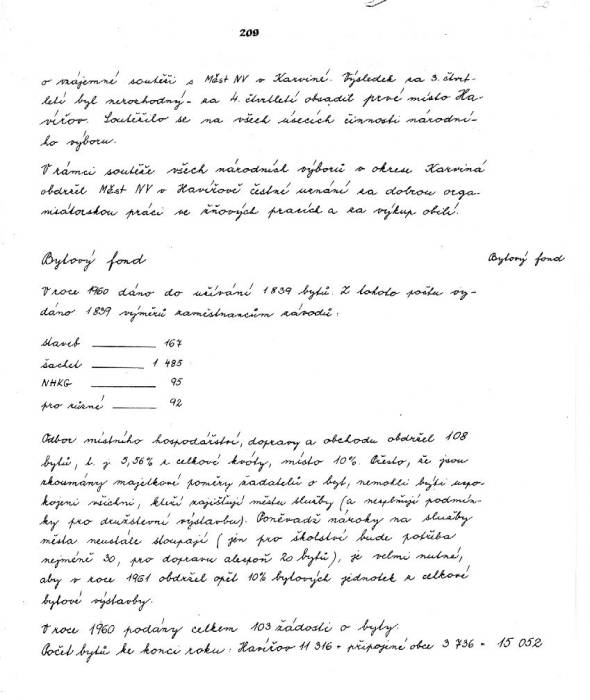 209
o vzájemné soutěži s Měst NV v Karviné. Výsledek za 3. čtvrt-
letí byl nerozhodný - za 4. čtvrtletí obsadil prvé místo Ha-
vířov. Soutěžilo se na všech úsecích činnosti národní-
ho výboru.
V rámci soutěže všech národních výborů v okrese Karviná
obdržel Měst NV v Havířově čestné uznání za dobrou orga-
nisátorskou práci ve žňových pracích a za výkup obilí.
Bytový fond
Bytový fond
V roce 1960 dáno do užívání 1839 bytů. Z tohoto počtu vy-
dáno 1839 výměrů zaměstnancům závodů:
staveb 167
šachet 1 485
NHKG 95
pro různé 92
Odbor místního hospodářství, dopravy a obchodu obdržel 108
bytů, t. j 5,56% z celkové kvóty, místo 10%. Přesto, že jsou
zkoumány majetkové poměry žadatelů o byt, nemohli býti uspo-
kojeni všichni, kteří zajišťují městu služby (a nesplňují podmín-
ky pro družstevní výstavbu). Poněvadž nároky na služby
města neustále stoupají (jen pro školství bude potřeba
nejméně 30, pro dopravu alespoň 20 bytů), je velmi nutné,
aby v roce 1961 obdržel opět 10% bytových jednotek z celkové
bytové výstavby.
V roce 1960 podány celkem 103 žádosti o byty.
Počet bytů ke konci roku: Havířov 11 316 - připojené obce 3 736 - 15 052